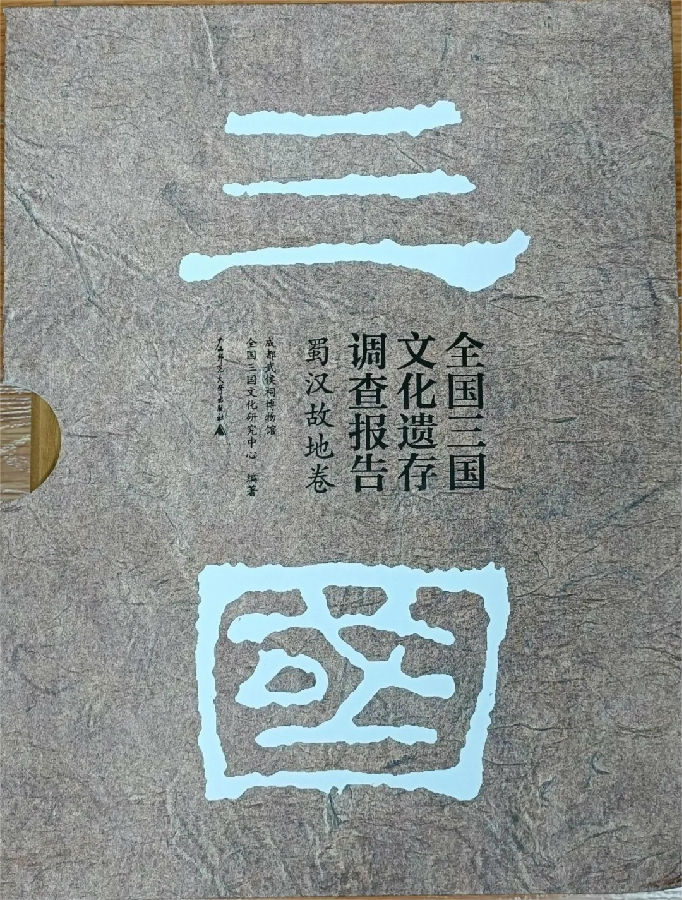 三
國
全国三国
文化遗存
调查报告
蜀汉故地卷
成都武侯祠博物馆
全国三国文化研究中心 编著
广西师范大学出版社